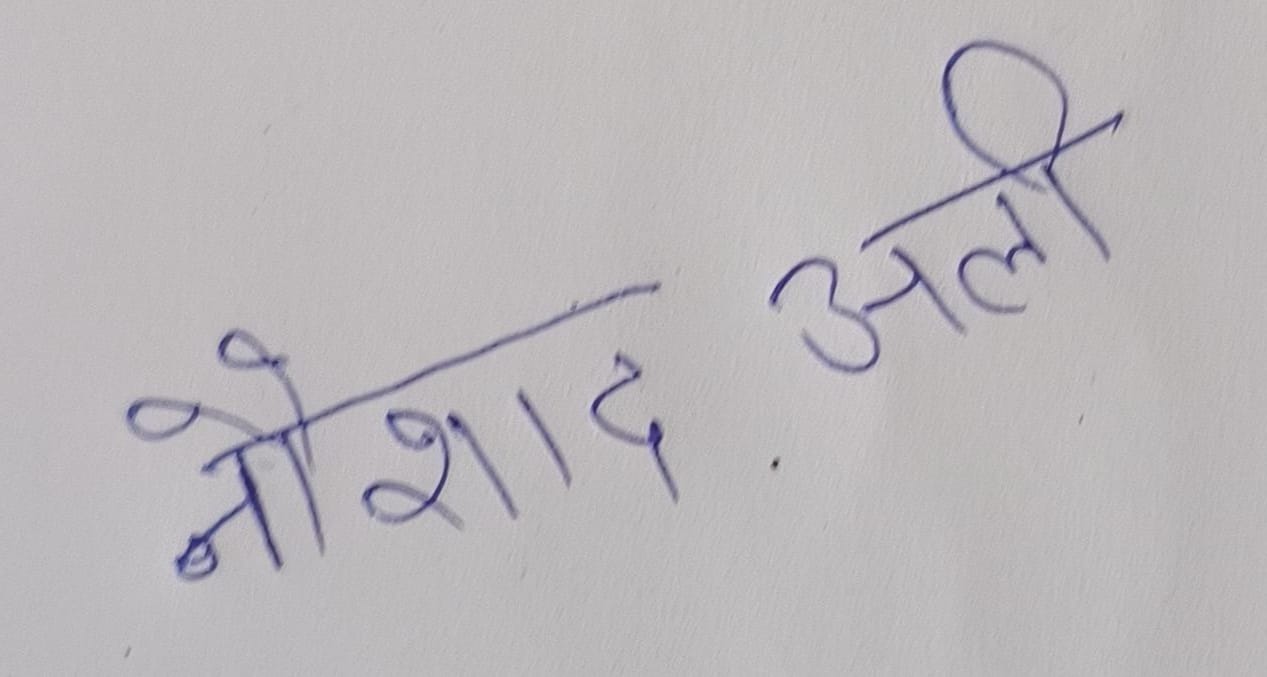 नौशाद अली